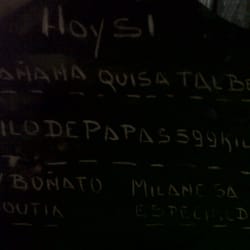 Hoy SI
AÑANA QUISA TALBE
ILO DE PAPAS 599 KIL
BOÑATO MILANESA
OUTIA ESPECIAL D